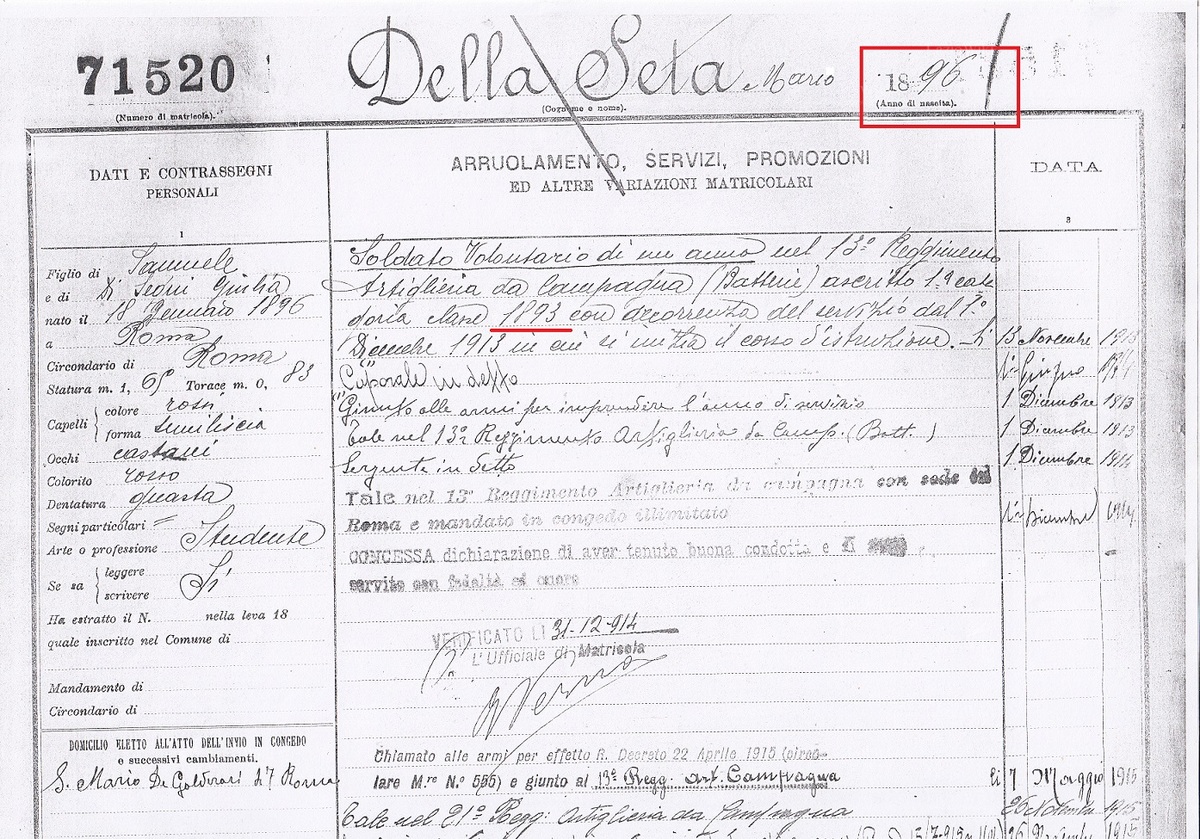 71520
Della Seta Mario
1896
(Numero di matricola).
(Cognome e nome).
(Anno di nascita).
DATI E CONTRASSEGNI
PERSONALI
1
Figlio di Samuele
e di Di Segni Giulia
nato il 18 Gennaio 1896
a Roma
Circondario di Roma
Statura m. 1, 65 Torace m. 0, 83
Capelli colore rossi
forma semiliscia
Occhi castani
Colorito rosso
Dentatura guasta
Segni particolari =
Arte o professione Studente
Se sa leggere
scrivere Si
Ha estratto il N. nella leva 18
quale inscritto nel Comune di
Mandamento di
Circondario di
DOMICILIO ELETTO ALL'ATTO DELL'INVIO IN CONGEDO
e successivi cambiamenti.
S. Maria De 47 Roma
ARRUOLAMENTO, SERVIZI, PROMOZIONI
ED ALTRE VARIAZIONI MATRICOLARI
Soldato Volontario di un anno nel 13º Reggimento
Artiglieria da Campagna (Batterie) ascritto 1ª cate
goria classe 1893 con decorrenza del servizio dal 1º
Dicembre 1913 in cui si inizia il corso d'istruzione. Li
Caporale in detto
Giunto alle armi per imprendere l'anno di servizio
Tale nel 13º Reggimento Artiglieria da Camp. (Batt.)
Sergente in detto
Tale nel 13º Reggimento Artiglieria da campagna con sede in
Roma e mandato in congedo illimitato
CONCESSA dichiarazione di aver tenuto buona condotta e
servito con fedeltà ed onore
VERIFICATO LI 31-12-914
L'Ufficiale di Matricola
Chiamato alle armi per effetto R. Decreto 22 Aprile 1915 (circo-
lare Mre N.º 555) e giunto al 13º Regg. art. Campagna
Tale nel 21º Regg: Artiglieria da Campagna
DATA
3
13 Novembre 1913
1º Giugno 1914
1 Dicembre 1913
1 Dicembre 1913
1 Dicembre 1914
1º Dicembre 1914
li 7 Maggio 1915
1915